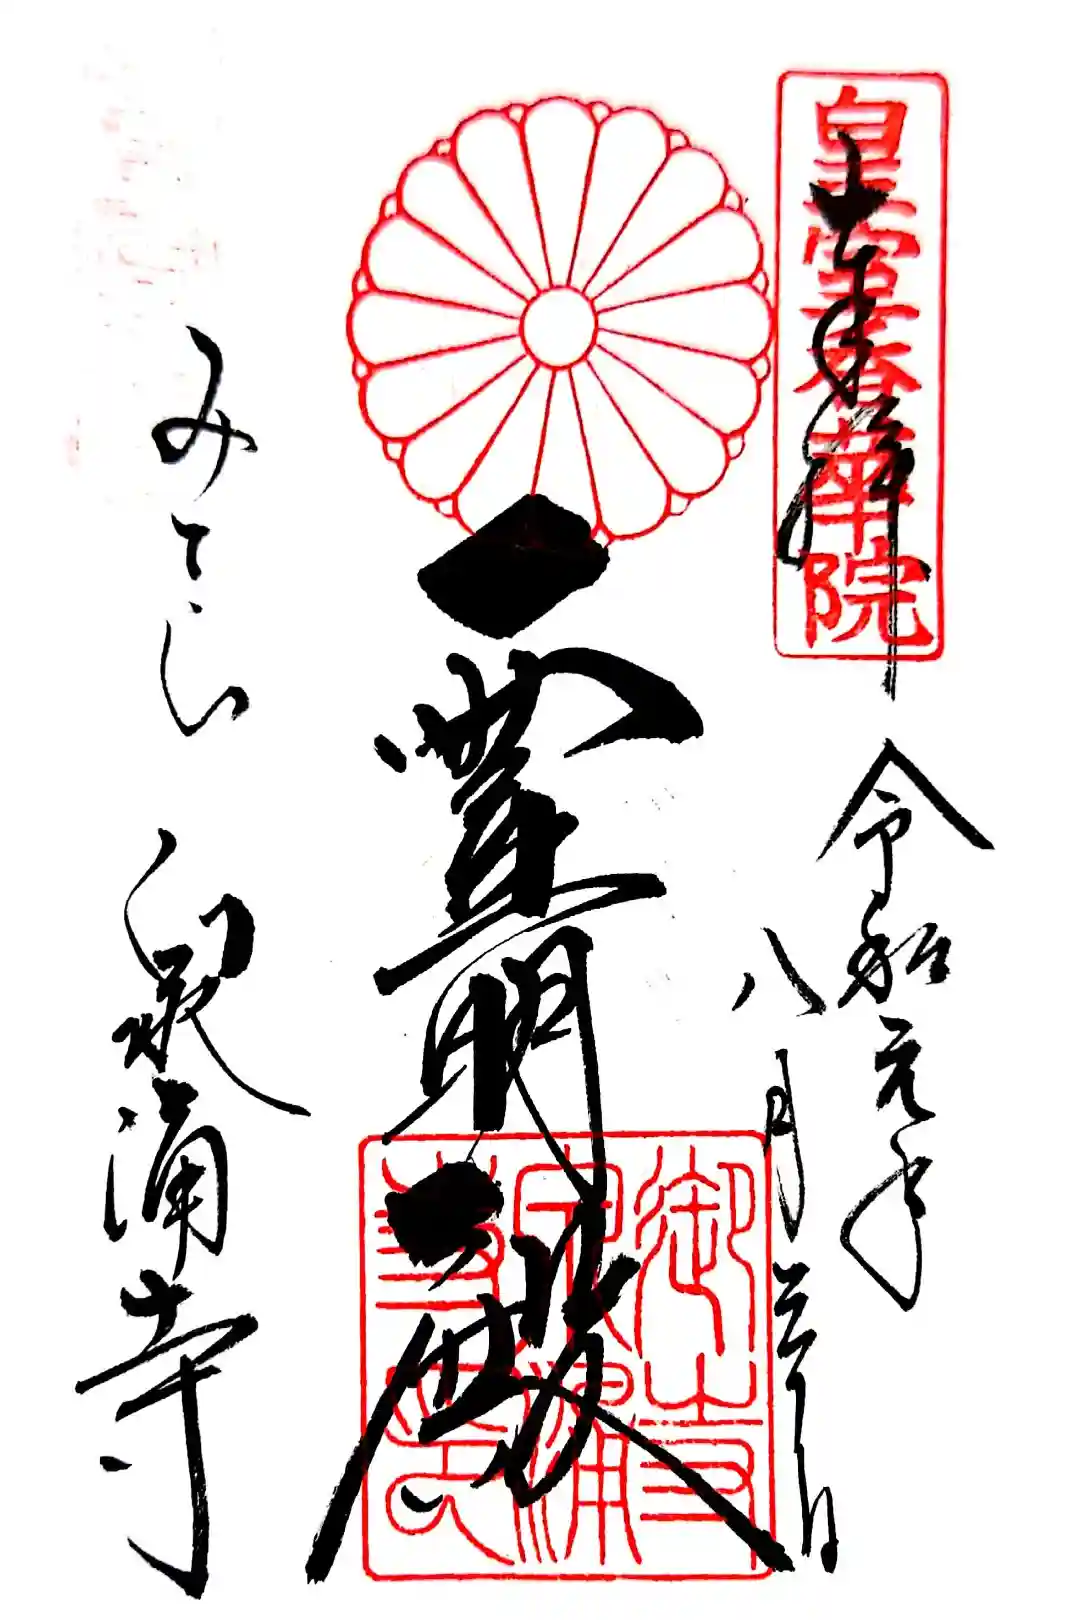 皇室香華院
奉拝
令和元年
八月三十一日
霊明殿
御寺
泉涌
みてら
泉涌寺